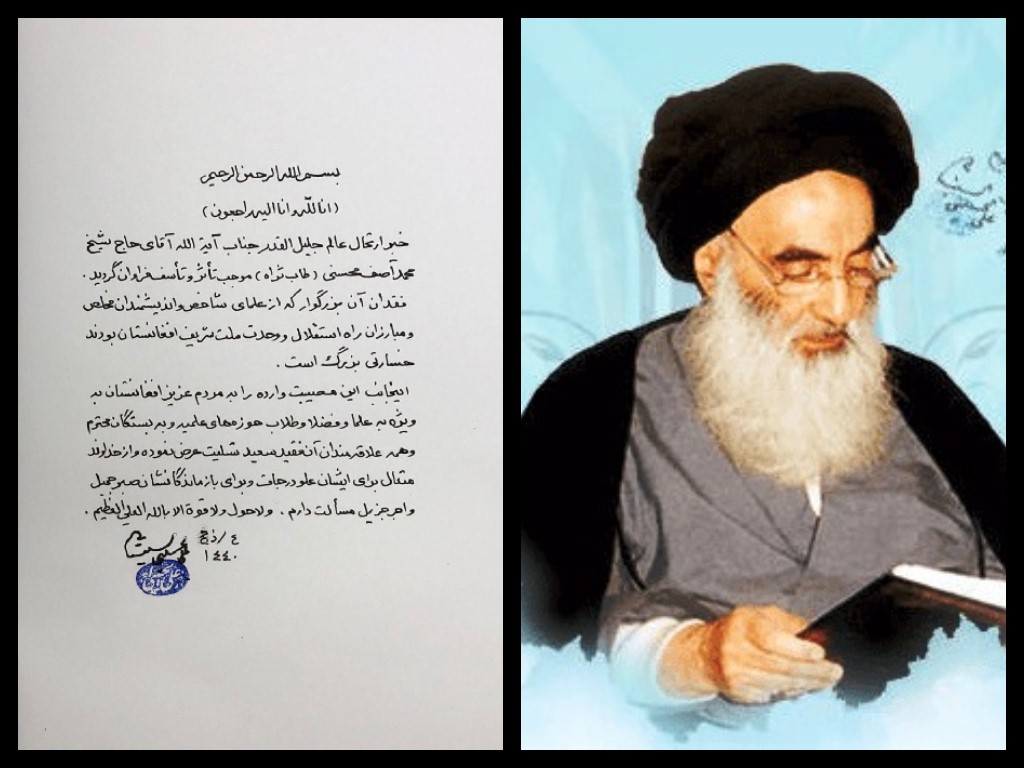 بسم الله الرحمن الرحيم
(انا لله و انا اليه راجعون)
خبر ارتحال عالم جليل القدر جناب آية الله آقای حاج شيخ
محمد آصف محسنی (طاب ثراه) موجب تأثر و تأسف فراوان گرديد.
فقدان آن بزرگوار که از علمای شاخص و انديشمندان مخلص
و مبارزان راه استقلال و وحدت ملت شريف افغانستان بودند
خسارتی بزرگ است.
اينجانب اين مصيبت وارده را به مردم عزيز افغانستان به
ويژه به علما و فضلا و طلاب حوزه‌های علميه و به بستگان محترم
و همه علاقه مندان آن فقيد سعيد تسليت عرض نموده و از خداوند
متعال برای ايشان علو درجات و برای بازماندگانشان صبر جميل
و اجر جزيل مسألت دارم. ولا حول ولا قوة الا بالله العلي العظيم.
٤ / ذ ح
١٤٤٠